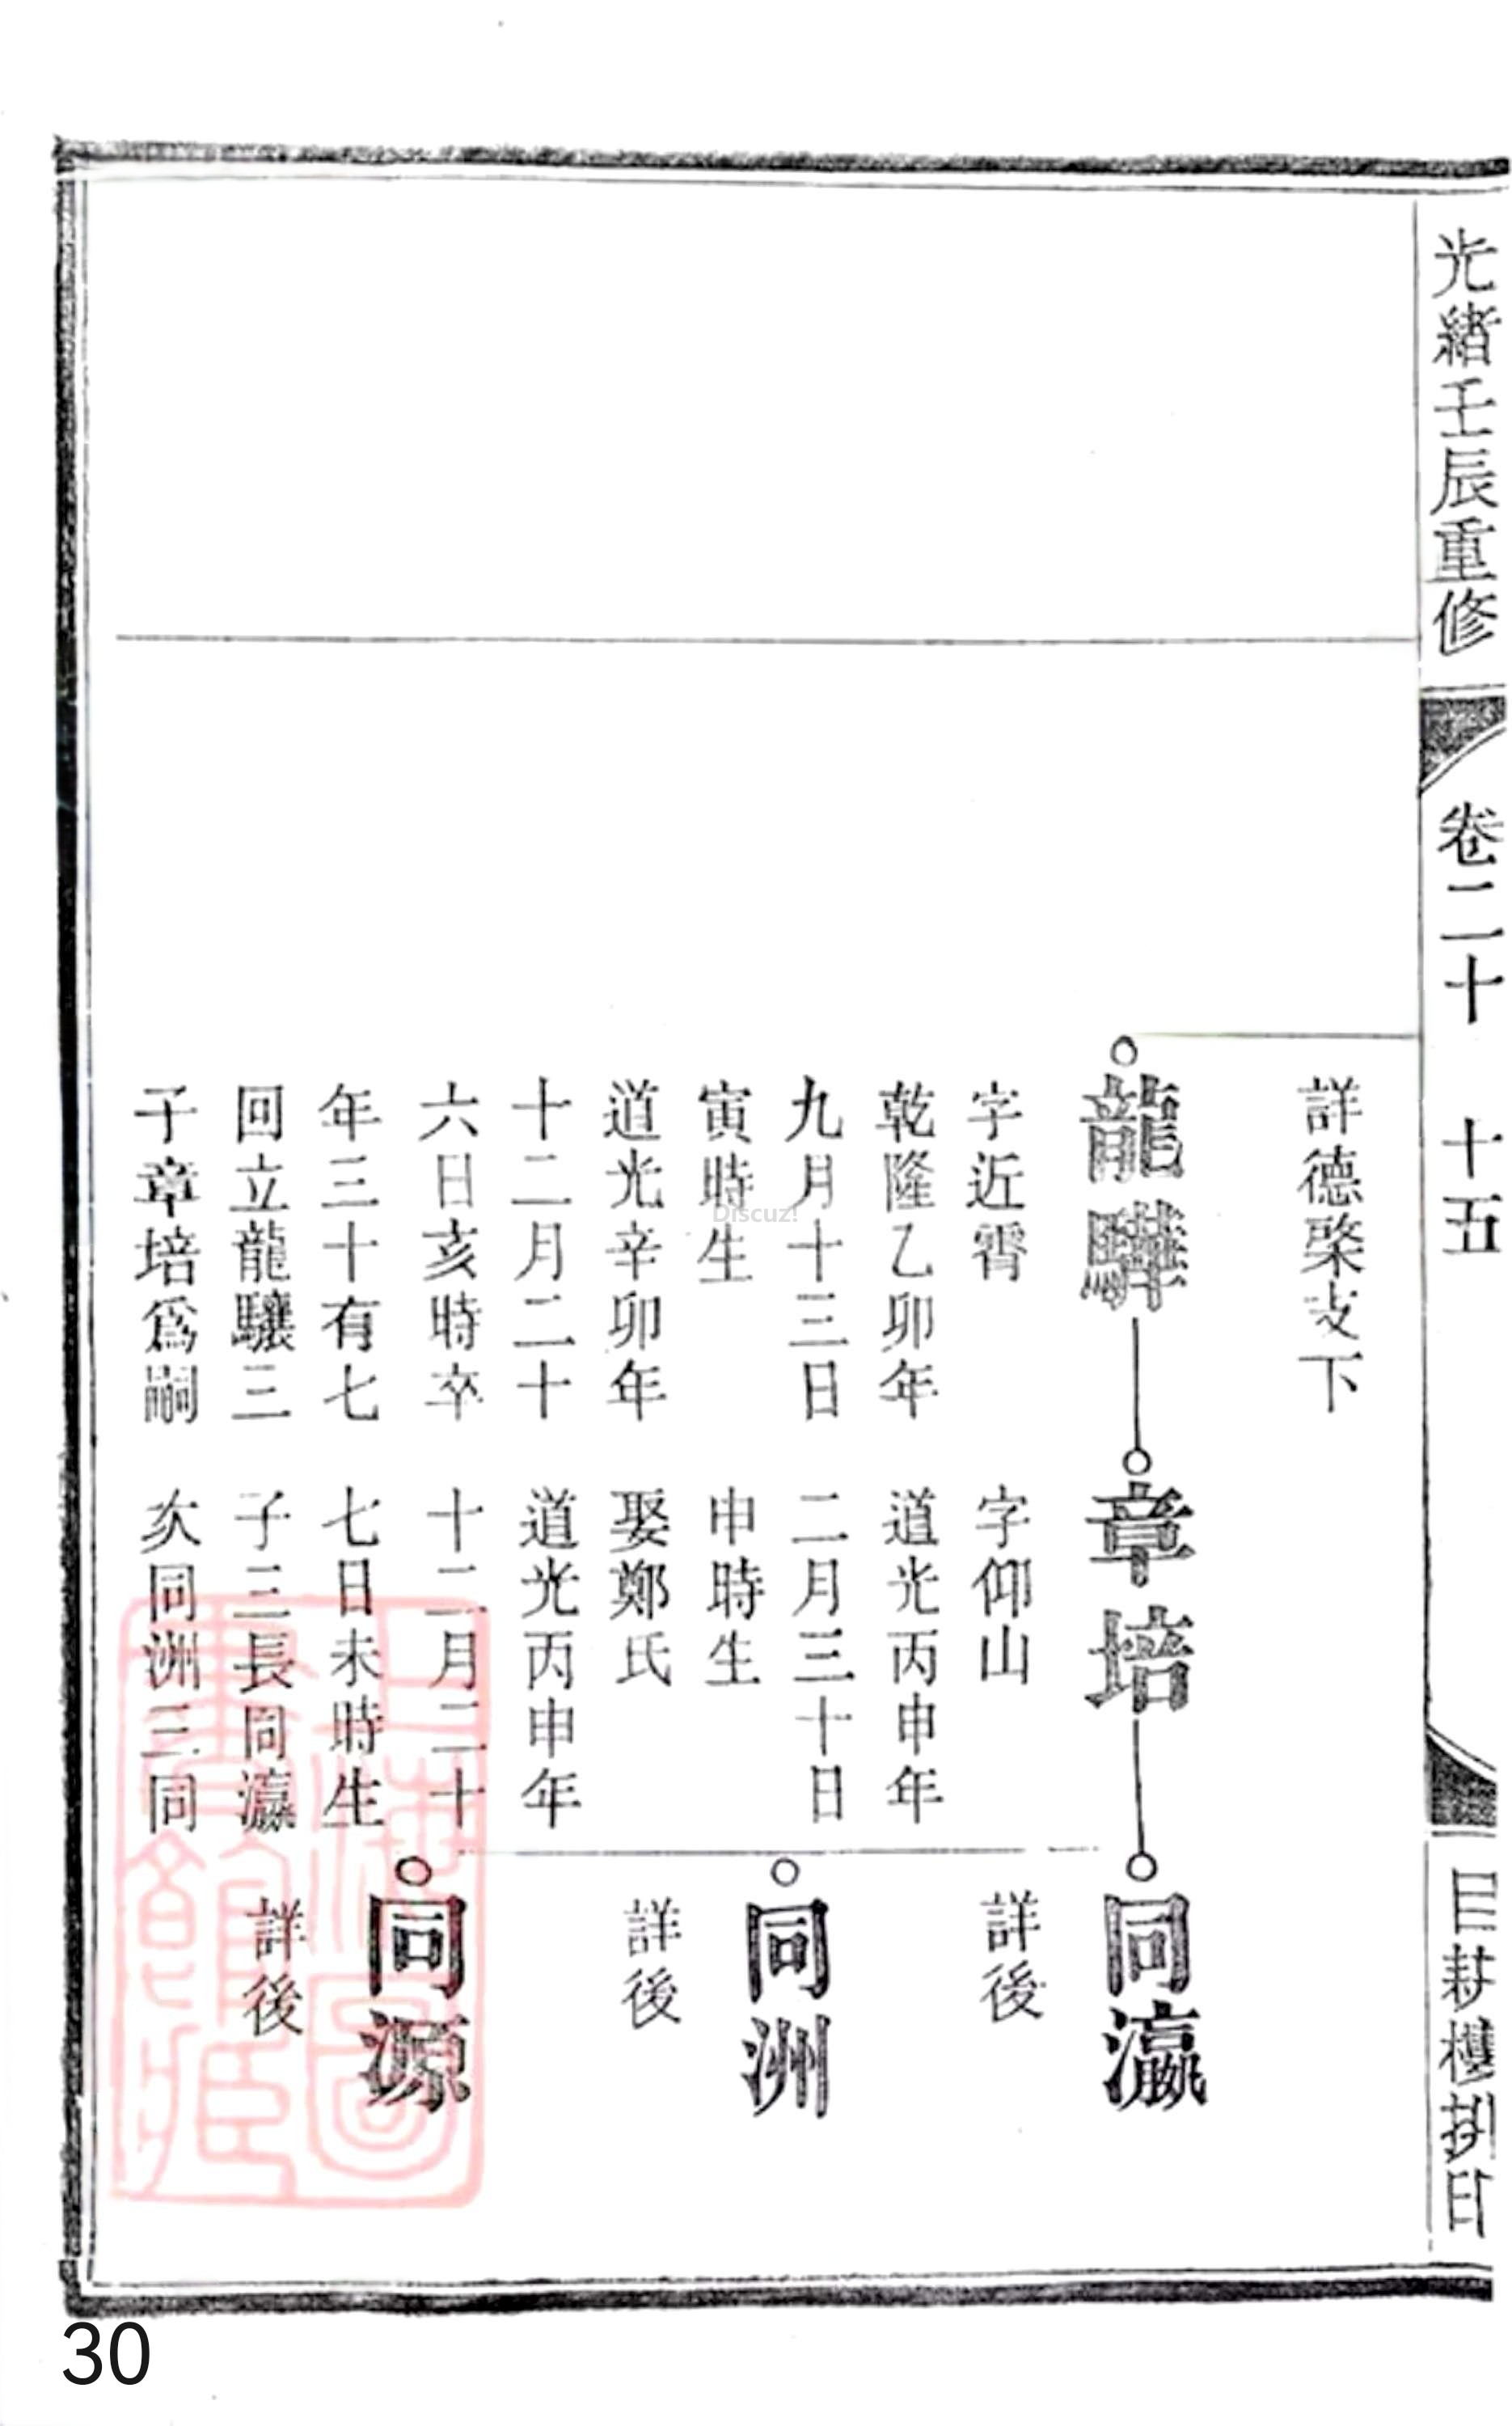 光緒壬辰重修
卷二十
十五
目耕樓捌印
詳德棨支下
龍驊
字近霄
乾隆乙卯年
九月十三日
寅時生
道光辛卯年
十二月二十
六日亥時卒
年三十有七
回立龍驤三
子章培爲嗣
章培
字仰山
道光丙申年
二月三十日
申時生
娶鄭氏
道光丙申年
十二月二十
七日未時生
子三長同瀛
次同洲三同
同瀛
詳後
同洲
詳後
同源
詳後
上海圖
書館藏
Discuz!
30